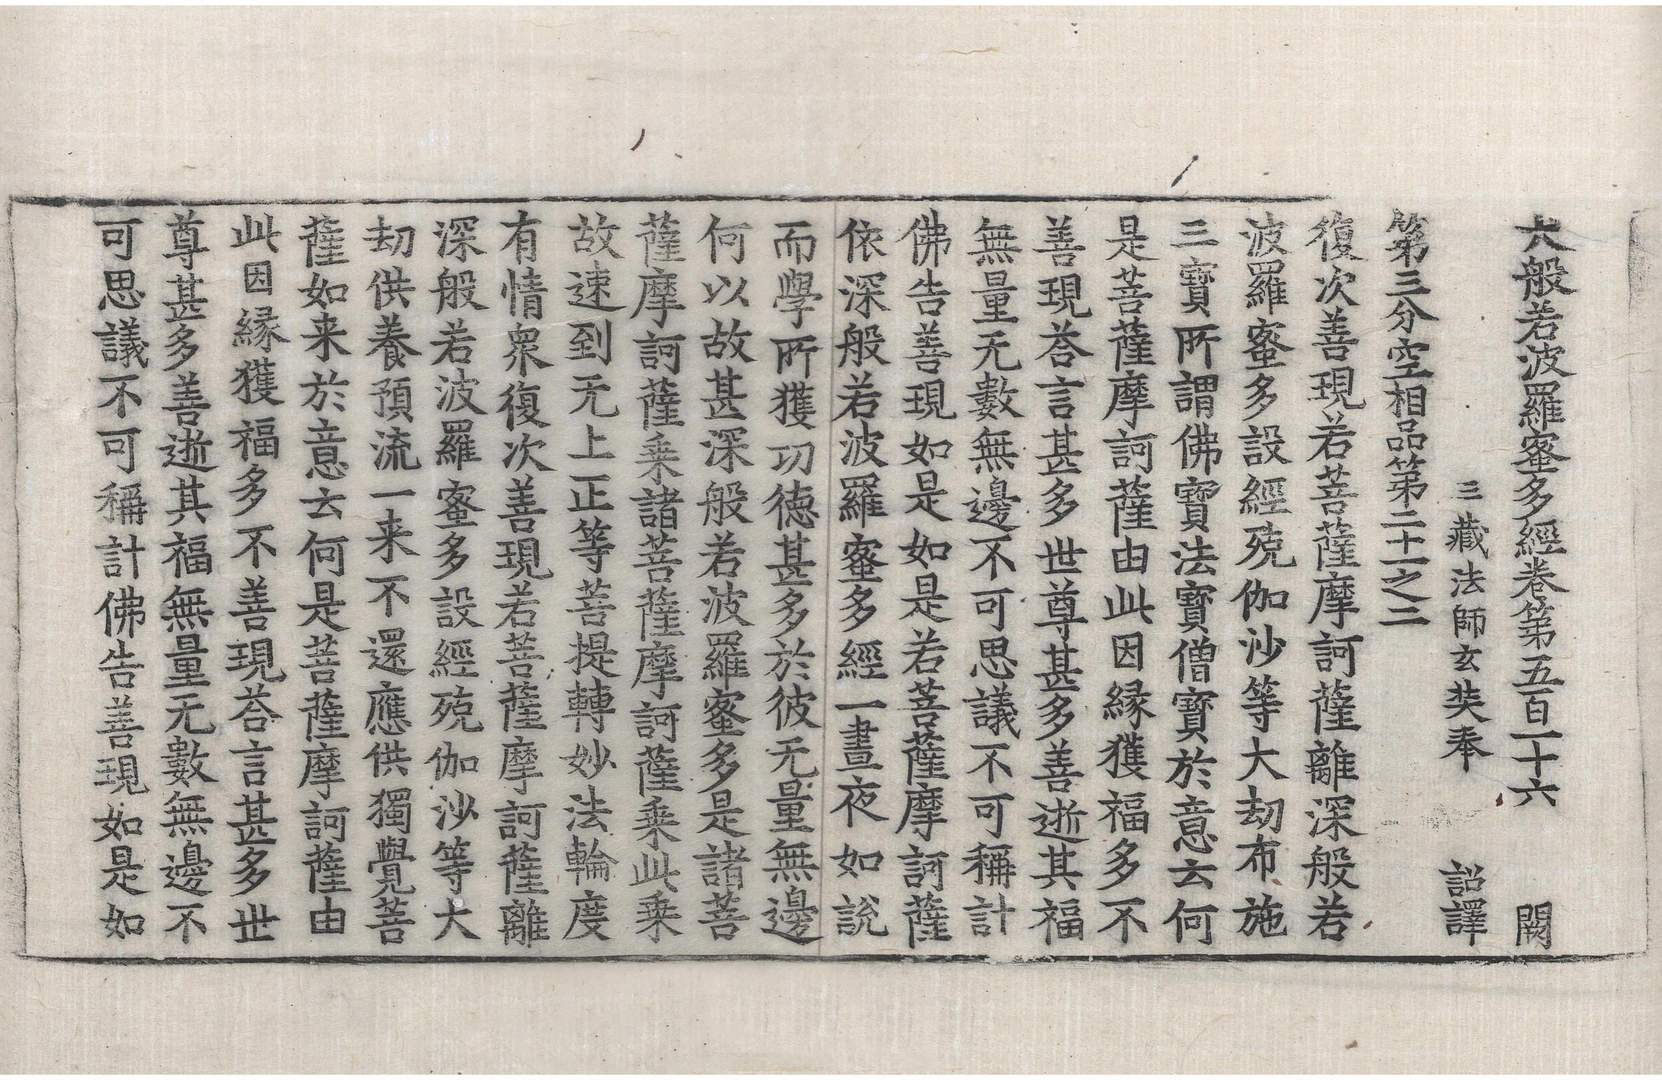 大般若波羅蜜多經卷第五百一十六　闕
三藏法師玄奘奉　詔譯
第三分空相品第二十一之二
復次善現若菩薩摩訶薩離深般若
波羅蜜多設經殑伽沙等大劫布施
三寶所謂佛寶法寶僧寶於意云何
是菩薩摩訶薩由此因緣獲福多不
善現荅言甚多世尊甚多善逝其福
無量无數無邊不可思議不可稱計
佛告善現如是如是若菩薩摩訶薩
依深般若波羅蜜多經一晝夜如說
而學所獲功德甚多於彼无量無邊
何以故甚深般若波羅蜜多是諸菩
薩摩訶薩乘諸菩薩摩訶薩乘此乘
故速到无上正等菩提轉妙法輪度
有情衆復次善現若菩薩摩訶薩離
深般若波羅蜜多設經殑伽沙等大
劫供養預流一来不還應供獨覺菩
薩如来於意云何是菩薩摩訶薩由
此因緣獲福多不善現荅言甚多世
尊甚多善逝其福無量无數無邊不
可思議不可稱計佛告善現如是如